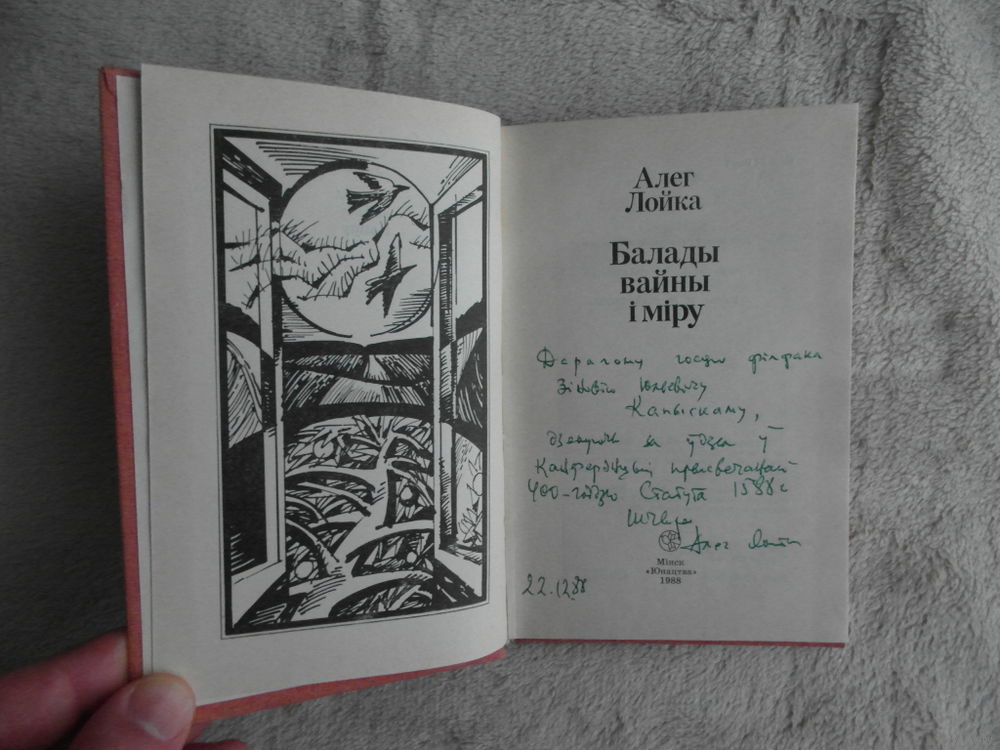 Алег
Лойка
Балады
вайны
і міру
Дарагому госцю філфака
Зіновію Юльевічу
Капыскаму,
дзякуючы за ўдзел у
канферэнцыі, прысвечанай
400-годдзю Статута 1588 г
Шчыра
Алег Лойка
Мінск
«Юнацтва»
1988
22.12.88